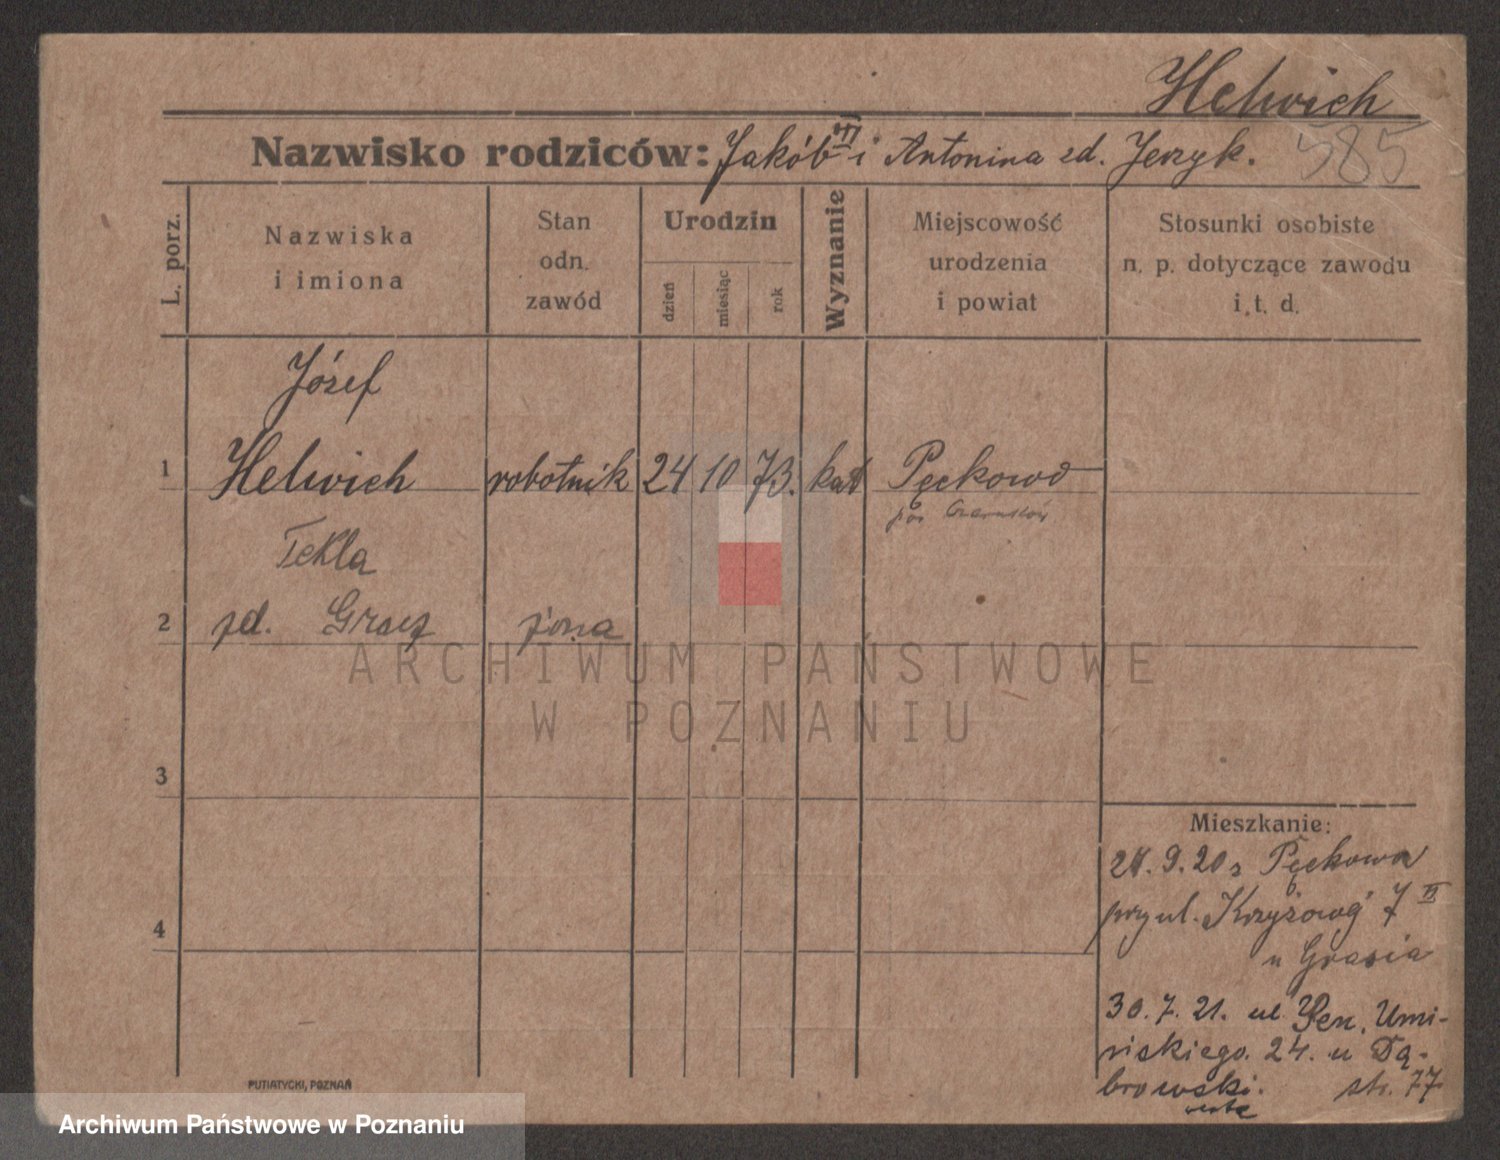 Helwich
Nazwisko rodziców: Jakób i Antonina zd. Jerzyk.
585
L. porz.
Nazwiska
i imiona
Stan
odn.
zawód
Urodzin
dzień
miesiąc
rok
Wyznanie
Miejscowość
urodzenia
i powiat
Stosunki osobiste
n. p. dotyczące zawodu
i. t. d.
Józef
1 Helwich robotnik 24 10 73. kat Pęckowo
pow Czarnków
Tekla
2 zd. Gracz żona
ARCHIWUM PAŃSTWOWE
W POZNANIU
3
4
Mieszkanie:
9.20 z Pęckowa
przy ul. Krzyżowej 7
u
30.7.21. ul. Gen. Umi-
ńskiego. 24. u Dą-
browski. str. 77
verte
PUTIATYCKI, POZNAŃ
Archiwum Państwowe w Poznaniu